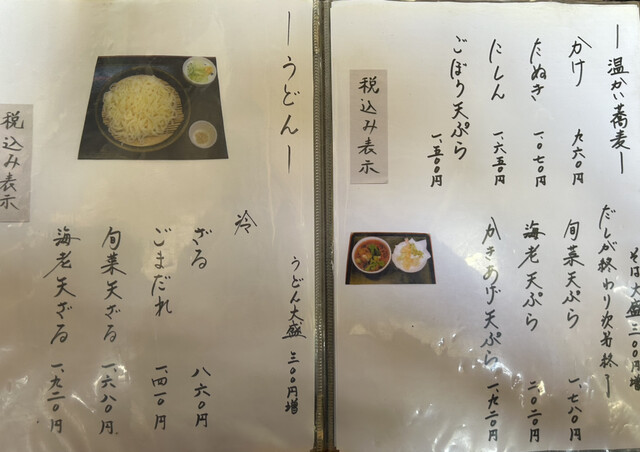 温かい蕎麦
そば大盛三〇〇円増
だしが終わり次第終了
かけ 九六〇円
たぬき 一、〇七〇円
にしん 一、六五〇円
ごぼう天ぷら 一、五〇〇円
旬菜天ぷら 一、七八〇円
海老天ぷら 二、〇二〇円
かきあげ天ぷら 一、九二〇円
税込み表示
うどん
うどん大盛 三〇〇円増
冷
ざる 八六〇円
ごまだれ 一、四一〇円
旬菜天ざる 一、六八〇円
海老天ざる 一、九二〇円
税込み表示